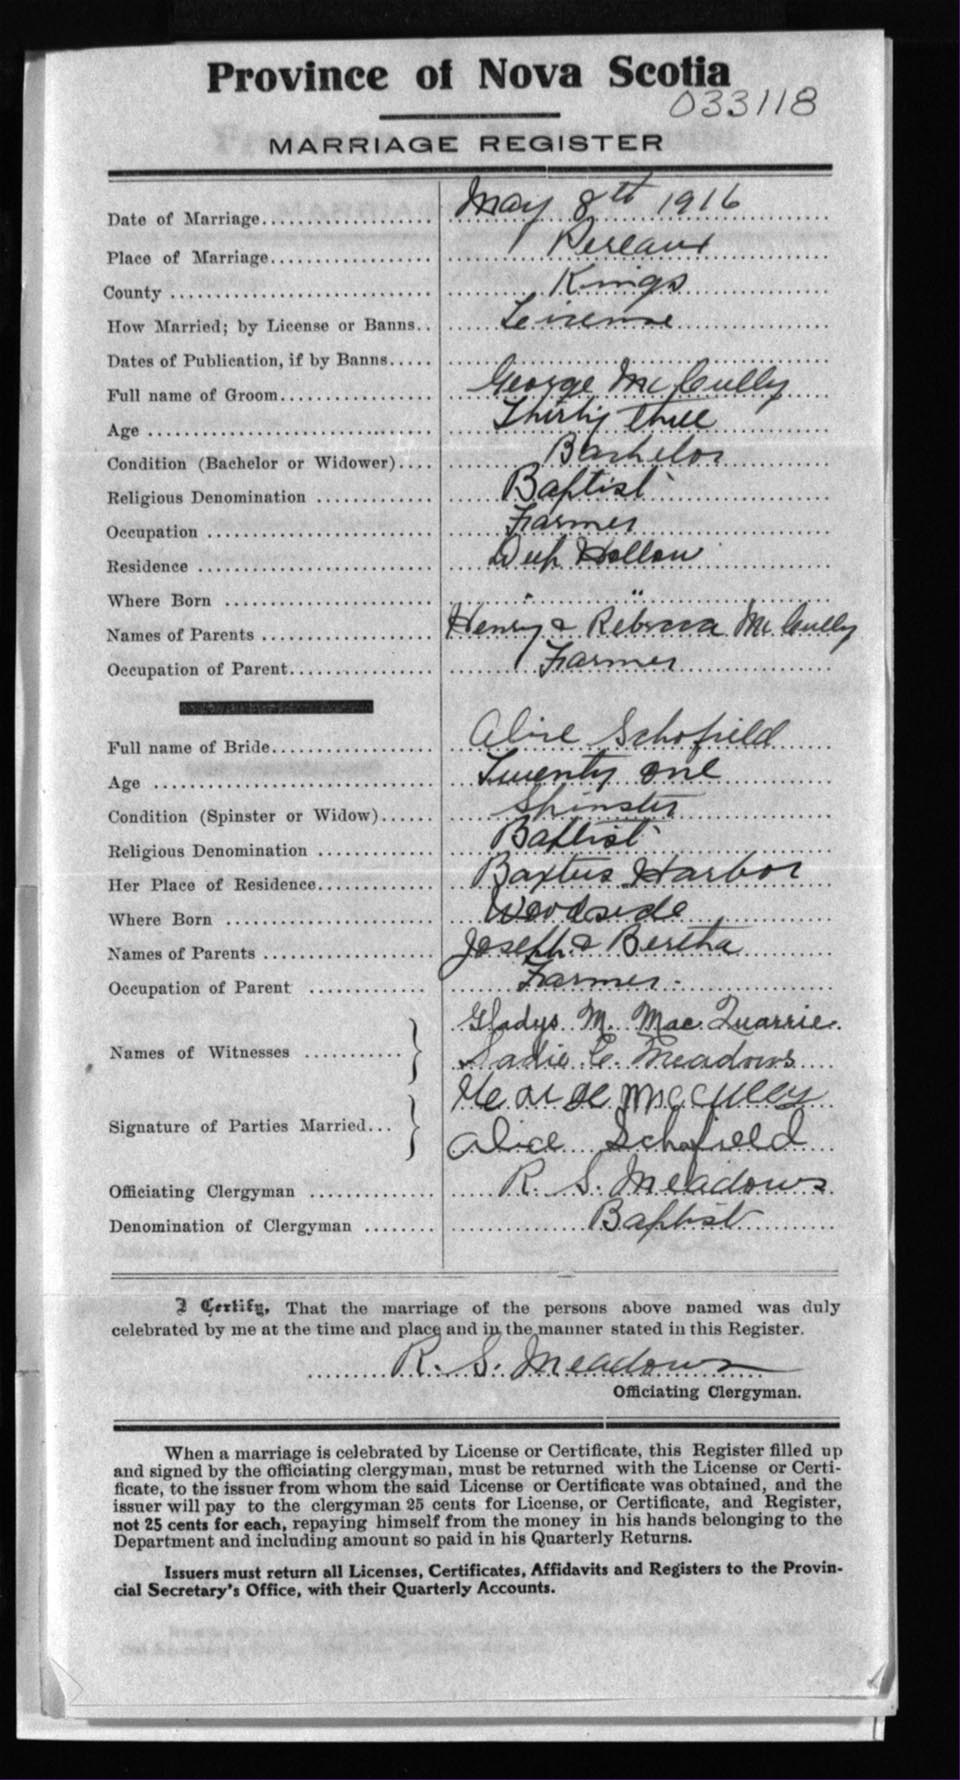 Province of Nova Scotia
033118
MARRIAGE REGISTER
Date of Marriage.................... May 8th 1916
Place of Marriage.................. Pereaux
County ............................... Kings
How Married; by License or Banns.. License
Dates of Publication, if by Banns.....
Full name of Groom................. George McCully
Age ................................. Thirty three
Condition (Bachelor or Widower).... Bachelor
Religious Denomination ............. Baptist
Occupation .......................... Farmer
Residence ........................... Deep Hollow
Where Born ........................ " "
Names of Parents .................... Henry & Rebecca McCully
Occupation of Parent................. Farmer
Full name of Bride................... Alice Schofield
Age ................................. Twenty one
Condition (Spinster or Widow)...... Spinster
Religious Denomination ............. Baptist
Her Place of Residence.............. Baxters Harbor
Where Born ........................ Woodside
Names of Parents .................... Joseph & Bertha
Occupation of Parent ............. Farmer.
Names of Witnesses ........... } Gladys M. MacQuarrie.
Sadie E. Meadows
Signature of Parties Married... } George McCulley
Alice Schofield
Officiating Clergyman .............. R. S. Meadows
Denomination of Clergyman ........ Baptist
I Certify, That the marriage of the persons above named was duly
celebrated by me at the time and place and in the manner stated in this Register.
R. S. Meadows
Officiating Clergyman.
When a marriage is celebrated by License or Certificate, this Register filled up
and signed by the officiating clergyman, must be returned with the License or Certi-
ficate, to the issuer from whom the said License or Certificate was obtained, and the
issuer will pay to the clergyman 25 cents for License, or Certificate, and Register,
not 25 cents for each, repaying himself from the money in his hands belonging to the
Department and including amount so paid in his Quarterly Returns.
Issuers must return all Licenses, Certificates, Affidavits and Registers to the Provin-
cial Secretary's Office, with their Quarterly Accounts.